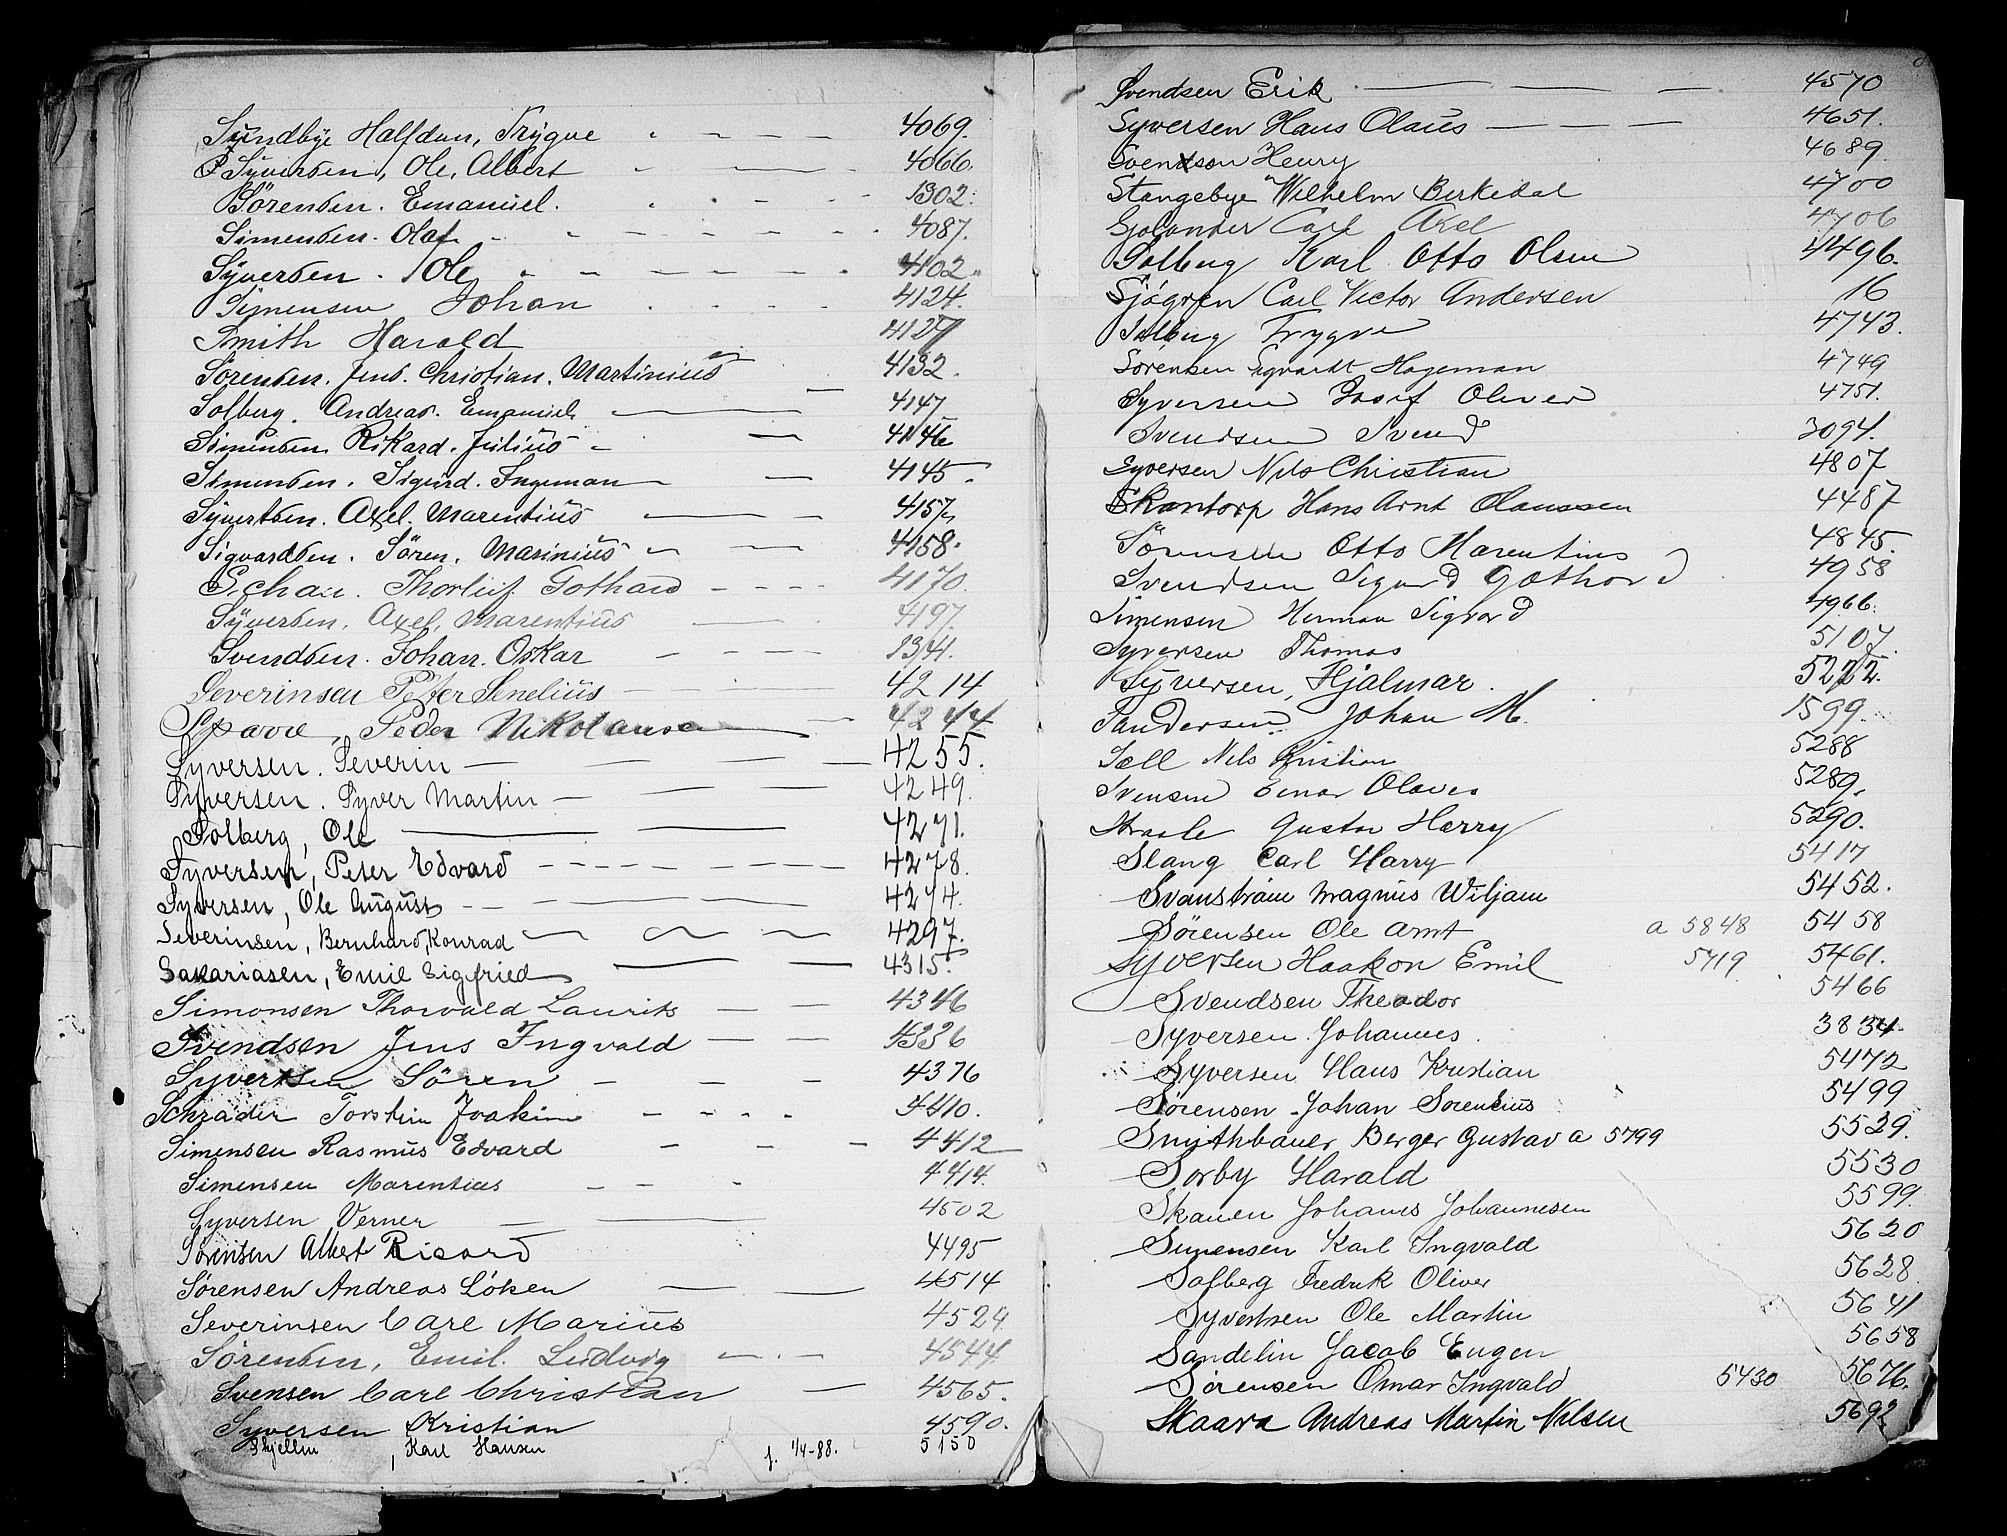 Sundbye Halfdan, Trygve 4069.
Syversen, Ole, Albert 4066.
Sörensen. Emanuel. 1302.
Simensen. Olaf 4087.
Syversen. Ole 4102.
Simensen Johan 4124.
Smith Harald 4127
Sörensen. Jens. Christian. Martinius 4132.
Solberg. Andreas. Emanuel 4147
Simensen Rikard. Julius 4146
Simensen. Sigurd. Ingeman 4145.
Syvertsen. Axel. Marentius 4157
Sigvardsen. Sören. Marinius 4158.
Schau. Thorleif Gothard 4170.
Syversen. Axel, Marentius 4197.
Svendsen. Johan. Oskar 1341.
Severinsen Peter Senelius 4214
Peder Nikolausen 4244
Syversen. Severin 4255.
Syversen. Syver Martin 4249.
Solberg, Ole 4271.
Syversen, Peter Edvard 4278.
Syversen, Ole August 4294.
Severinsen, Bernhard, Konrad 4297.
Sakariasen, Emil Sigfried 4315.
Simonsen Thorvald Laurits 4346
Svendsen Jens Ingvald 4336
Syversen Sören 4376
Schrader Torstein Joakim 4410.
Simensen Rasmus Edvard 4412
Simensen Marentius 4414.
Syversen Verner 4502
Sörensen Albert Ricard 4495
Sörensen Andreas Löken 4514
Severinsen Carl Marius 4524
Sörensen, Emil. Ludvig 4544
Svensen Carl Christian 4565.
Syversen Kristian 4590.
Skjellin, Karl Hansen f. 1/4-88. 5150
Svendsen Erik 4570
Syversen Hans Olaus 4651.
Svendsen Henry 4689
Stangebye Wilhelm Birkedal 4700
Sjølander Carl Axel 4706
Solberg Karl Otto Olsen 4496.
Sjögren Carl Victor Andersen 16
Solberg Trygve 4743.
Sörensen Sigvardt Hageman 4749
Syversen Josef Oliver 4751.
Svendsen Svend 3094.
Syversen Nils Christian 4807
Skantorp Hans Arnt Olaussen 4487
Sörensen Otto Marentius 4845.
Svendsen Sigurd Gothard 4958
Simensen Herman Sigvard 4966.
Syversen Thomas 5107.
Syversen, Hjalmar. 5222.
Sandersen Johan M. 1599.
Sell Nils Kristian 5288
Svensen Einar Olaves 5289.
Straale Gustav Harry 5290.
Slang Carl Harry 5417
Svanstrøm Magnus Wiljam 5452.
Sörensen Ole Arnt a 5848 5458
Syversen Haakon Emil 5719 5461.
Svendsen Theodor 5466
Syversen Johannes. 3834.
Syversen Hans Kristian 5472
Sörensen Johan Sorenius 5499
Smythbauer Berger Gustav a 5799 5529.
Sorby Harald 5530
Skauen Johanes Johannesen 5599.
Simensen Karl Ingvald 5620
Solberg Fredrik Oliver 5628
Syvertsen Ole Martin 5641
Sandelin Jacob Eugen 5658
Sörensen Omar Ingvald 5430 5676.
Skaara Andreas Martin Nilsen 5692